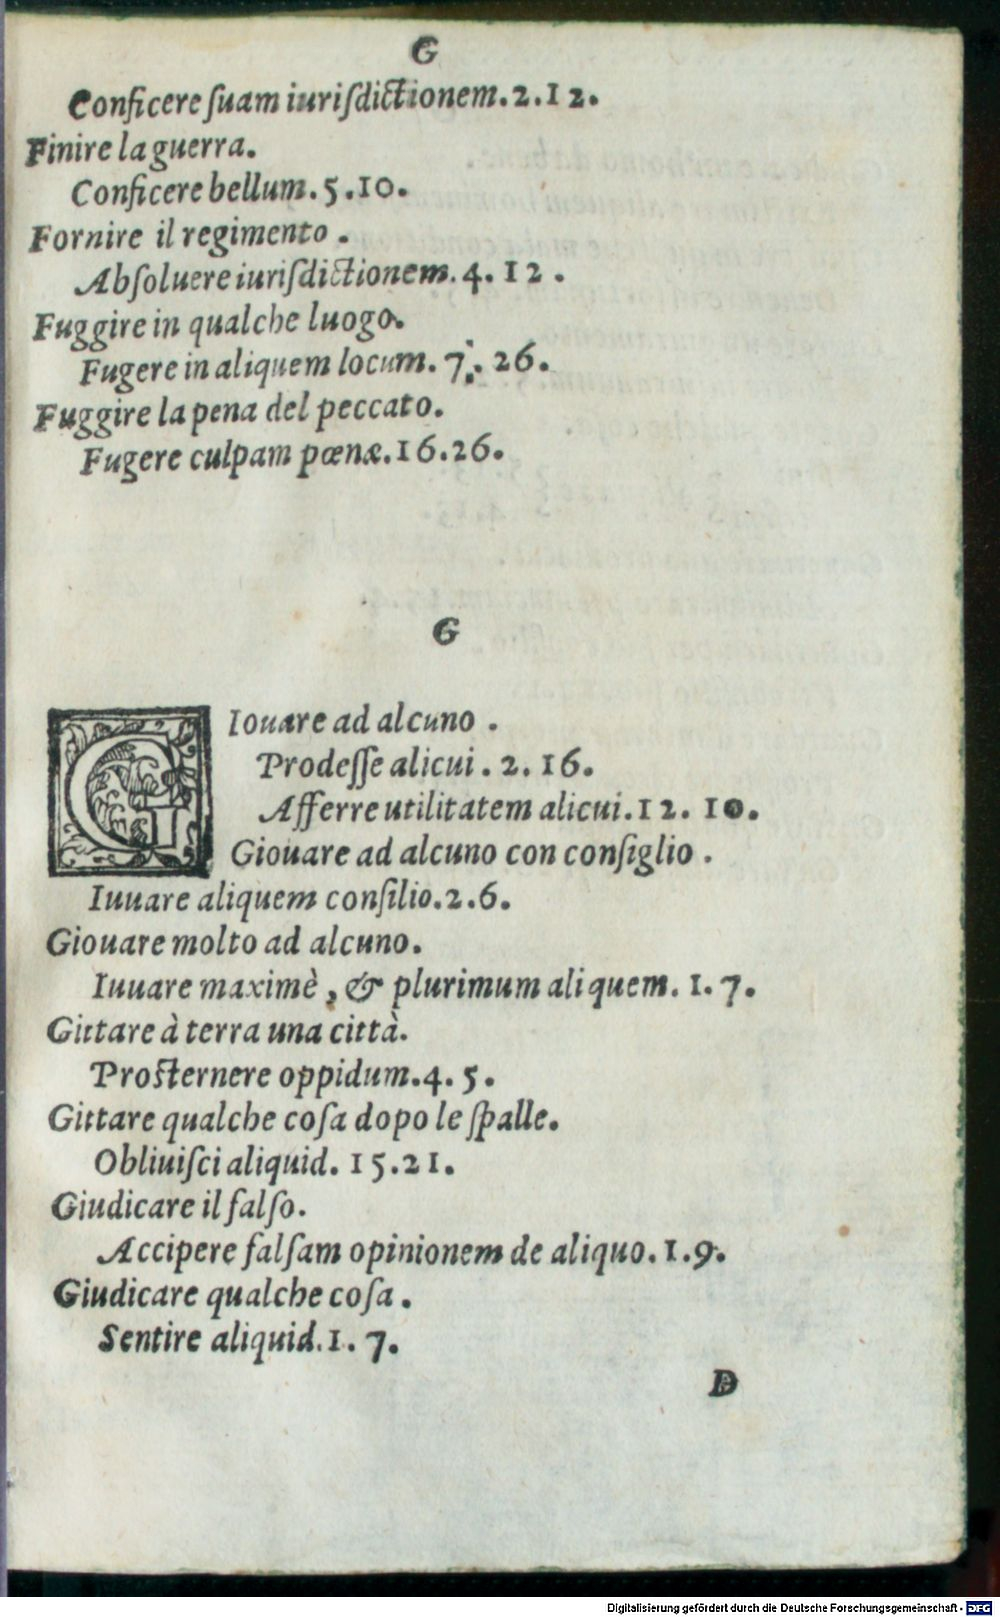 G
Conficere ſuam iuriſdictionem.2.12.
Finire la guerra.
Conficere bellum.5.10.
Fornire il regimento.
Abſoluere iuriſdictionem.4.12.
Fuggire in qualche luogo.
Fugere in aliquem locum. 7. 26.
Fuggire la pena del peccato.
Fugere culpam pœnæ.16.26.
G
GIouare ad alcuno.
Prodeſſe alicui.2.16.
Afferre utilitatem alicui.12.10.
Giouare ad alcuno con conſiglio.
Iuuare aliquem conſilio.2.6.
Giouare molto ad alcuno.
Iuuare maximè, & plurimum aliquem. 1.7.
Gittare à terra una città.
Prosternere oppidum.4.5.
Gittare qualche coſa dopo le ſpalle.
Obliuiſci aliquid. 15.21.
Giudicare il falſo.
Accipere falſam opinionem de aliquo.1.9.
Giudicare qualche coſa.
Sentire aliquid.1.7.
D
Digitalisierung gefördert durch die Deutsche Forschungsgemeinschaft - DFG